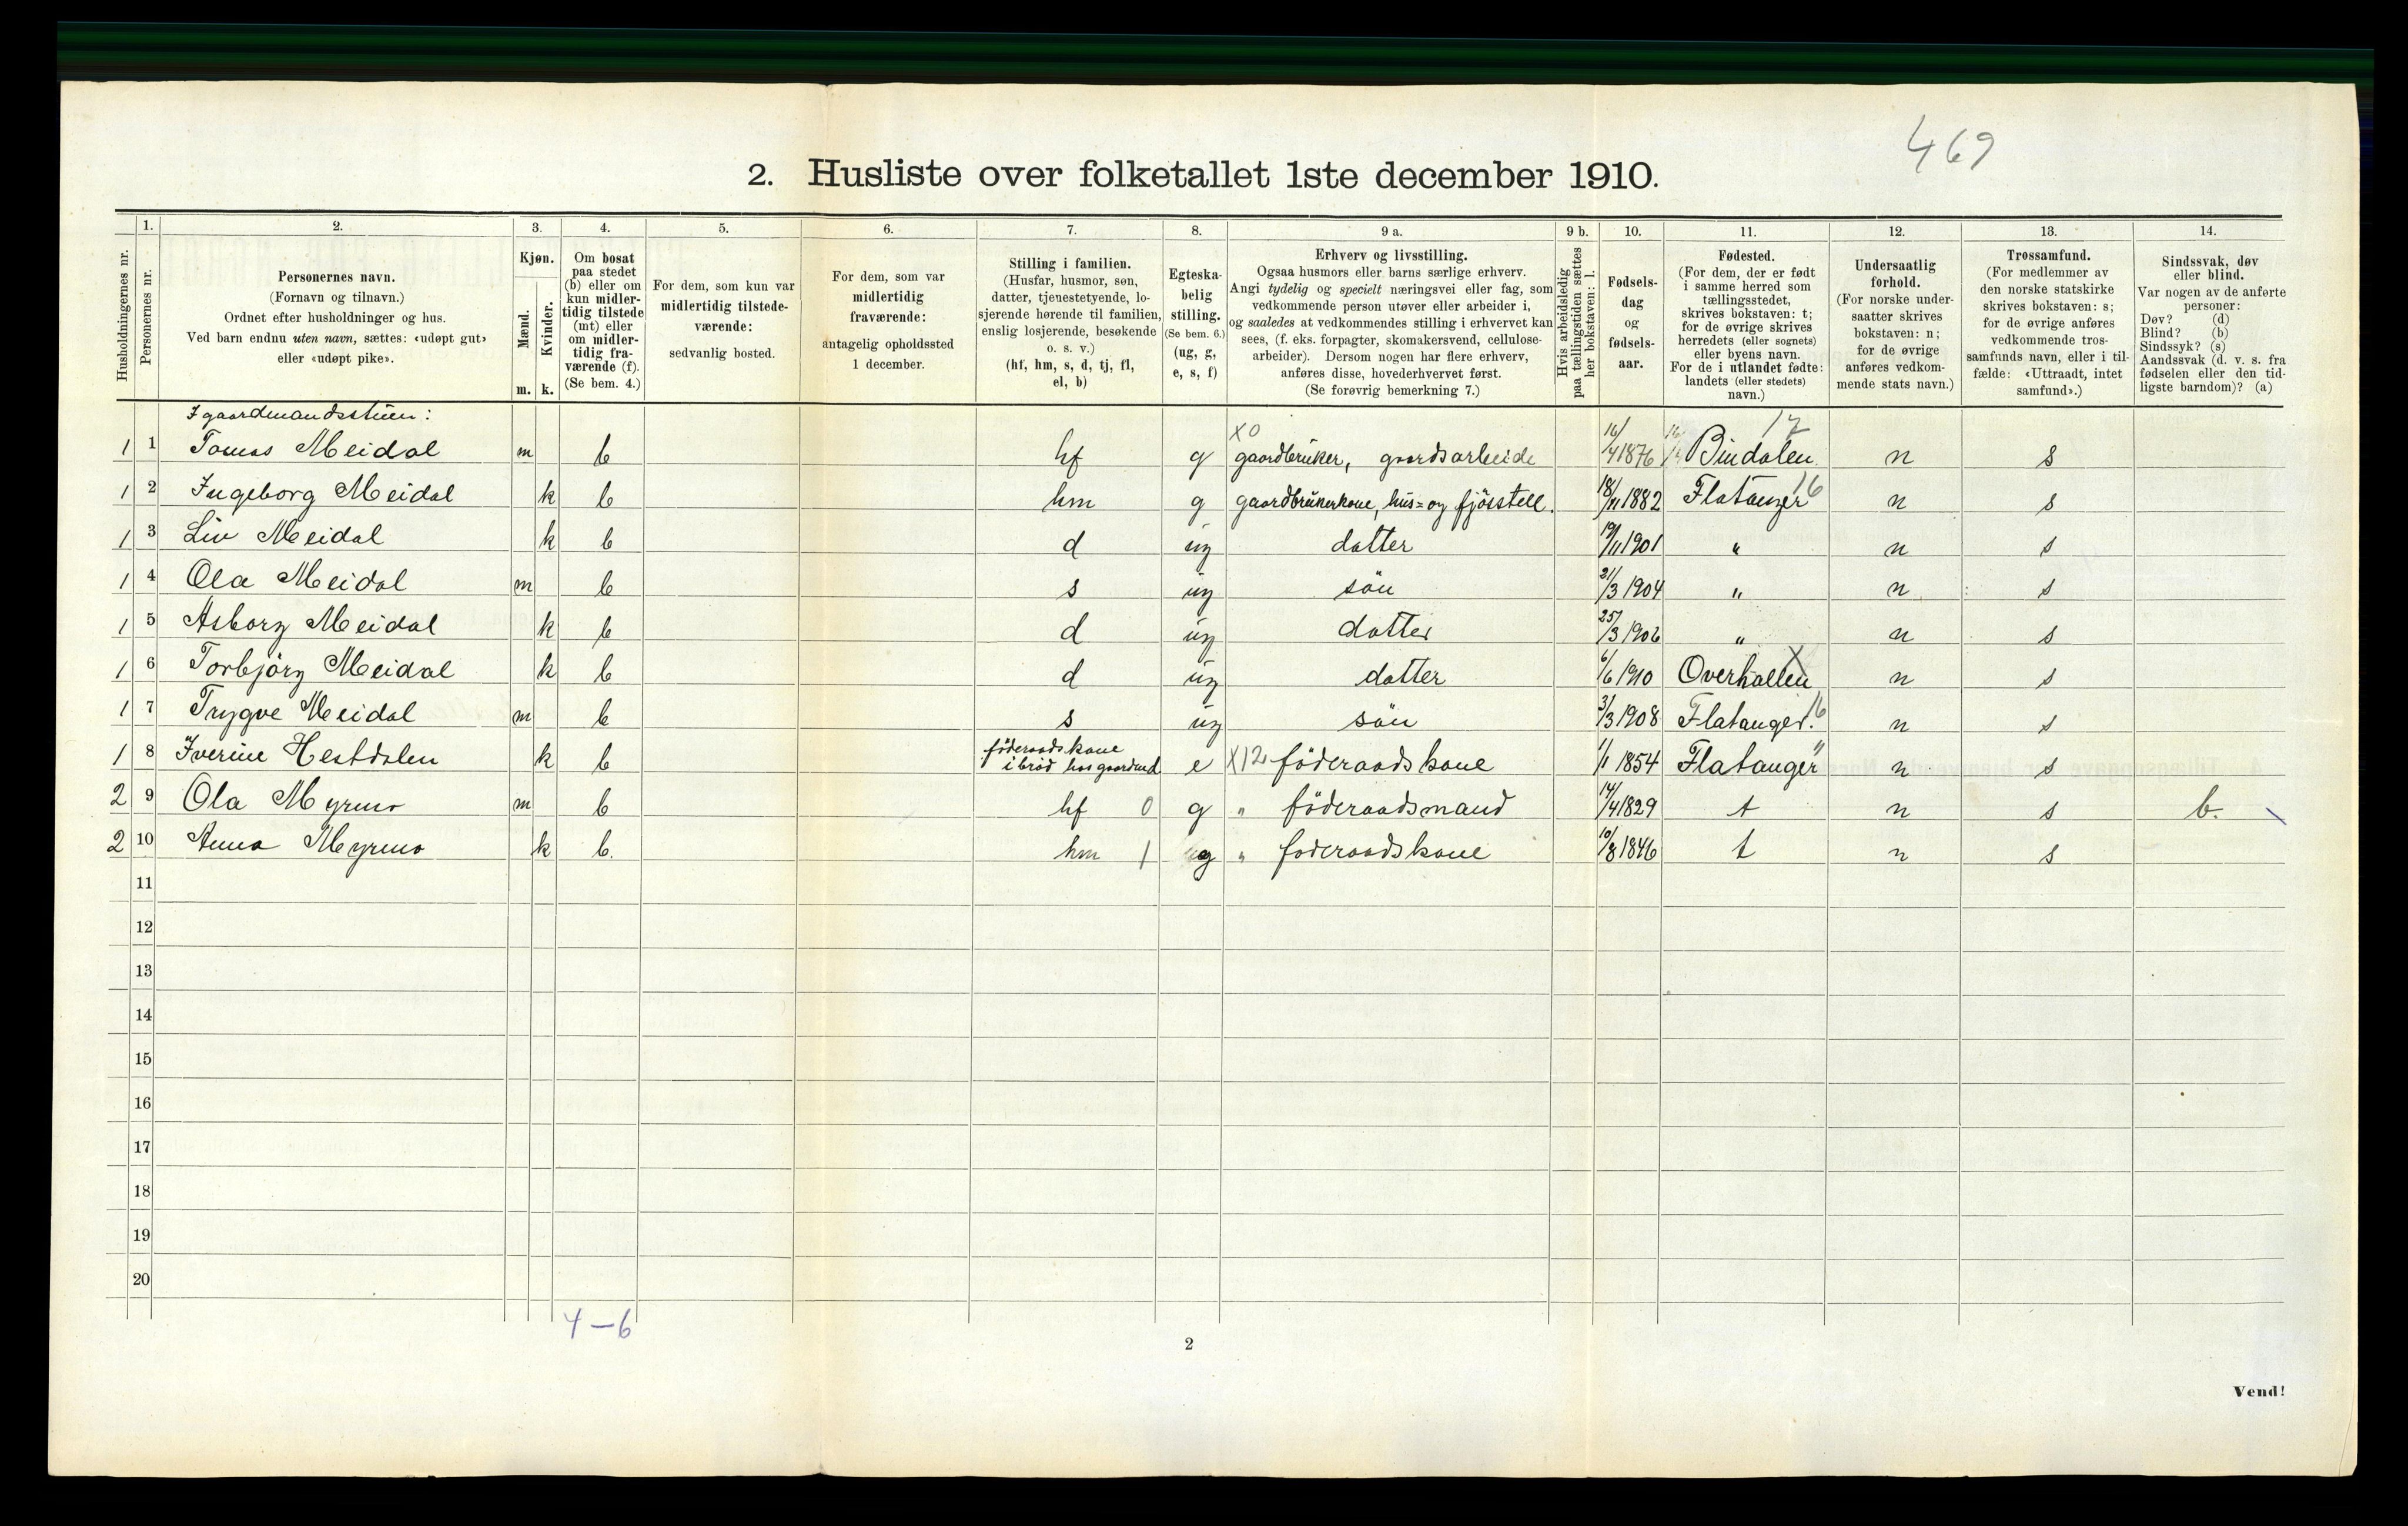 469
2. Husliste over folketallet 1ste december 1910.
Husholdningernes nr.
1. Personernes nr.
2. Personernes navn.
(Fornavn og tilnavn.)
Ordnet efter husholdninger og hus.
Ved barn endnu uten navn, sættes: «udøpt gut»
eller «udøpt pike».
3. Kjøn.
Mænd. m.
Kvinder. k.
4. Om bosat
paa stedet
(b) eller om
kun midler-
tidig tilstede
(mt) eller
om midler-
tidig fra-
værende (f).
(Se bem. 4.)
5. For dem, som kun var
midlertidig tilstede-
værende:
sedvanlig bosted.
6. For dem, som var
midlertidig
fraværende:
antagelig opholdssted
1 december.
7. Stilling i familien.
(Husfar, husmor, søn,
datter, tjenestetyende, lo-
sjerende hørende til familien,
enslig losjerende, besøkende
o. s. v.)
(hf, hm, s, d, tj, fl,
el, b)
8. Egteska-
belig
stilling.
(Se bem. 6.)
(ug, g,
e, s, f)
9 a. Erhverv og livsstilling.
Ogsaa husmors eller barns særlige erhverv.
Angi tydelig og specielt næringsvei eller fag, som
vedkommende person utøver eller arbeider i,
og saaledes at vedkommendes stilling i erhvervet kan
sees, (f. eks. forpagter, skomakersvend, cellulose-
arbeider). Dersom nogen har flere erhverv,
anføres disse, hovederhvervet først.
(Se forøvrig bemerkning 7.)
9 b. Hvis arbeidsledig
paa tællingstiden sættes
her bokstaven: l.
10. Fødsels-
dag
og
fødsels-
aar.
11. Fødested.
(For dem, der er født
i samme herred som
tællingsstedet,
skrives bokstaven: t;
for de øvrige skrives
herredets (eller sognets)
eller byens navn.
For de i utlandet fødte:
landets (eller stedets)
navn.)
12. Undersaatlig
forhold.
(For norske under-
saatter skrives
bokstaven: n;
for de øvrige
anføres vedkom-
mende stats navn.)
13. Trossamfund.
(For medlemmer av
den norske statskirke
skrives bokstaven: s;
for de øvrige anføres
vedkommende tros-
samfunds navn, eller i til-
fælde: «Uttraadt, intet
samfund».)
14. Sindssvak, døv
eller blind.
Var nogen av de anførte
personer:
Døv? (d)
Blind? (b)
Sindssyk? (s)
Aandssvak (d. v. s. fra
fødselen eller den tid-
ligste barndom)? (a)
I gaardmandsstuen:
X0 17
1 1 Tomas Meidal m b hf g gaardbruker, gaardsarbeide 16/4 1876 Bindalen n s
1 2 Ingeborg Meidal k b hm g gaardbrukerkone, hus- og fjösstell. 18/11 1882 Flatanger 16 n s
1 3 Liv Meidal k b d ug datter 19/11 1901 " n s
1 4 Ola Meidal m b s ug sön 21/3 1904 " n s
1 5 Asborg Meidal k b d ug datter 25/3 1906 " n s
1 6 Torbjörg Meidal k b d ug datter 6/6 1910 Overhallen X n s
1 7 Trygve Meidal m b s ug sön 3/3 1908 Flatanger. 16 n s
1 8 Iverine Hestdalen k b föderaadskone i bröd hos gaardmd e X12 föderaadskone 1/1 1854 Flatanger " n s
2 9 Ola Myrmo m b hf 0 g " föderaadsmand 14/4 1829 t n s b.
2 10 Anna Myrmo k b. hm 1 g " foderaadskone 10/8 1846 t n s
11
12
13
14
15
16
17
18
19
20
4-6
2
Vend!